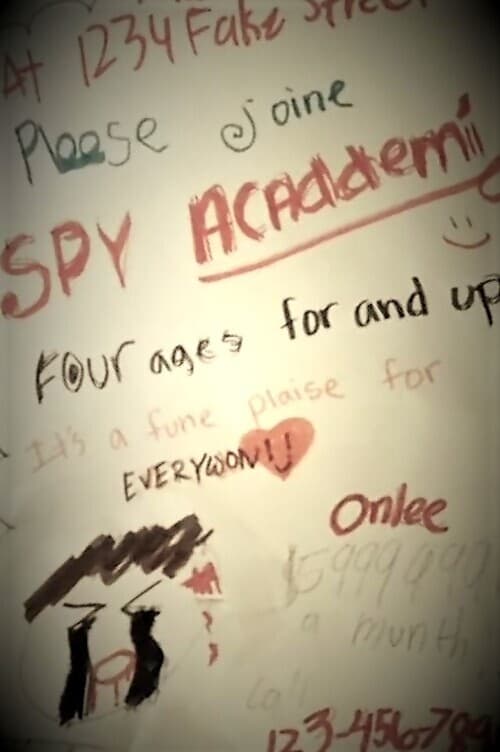 At 1234 Fake Street
Please joine
SPY ACAddemi
Four ages for and up
It's a fune plaise for
EVERYWON!!
Onlee
a munth
123-456-789